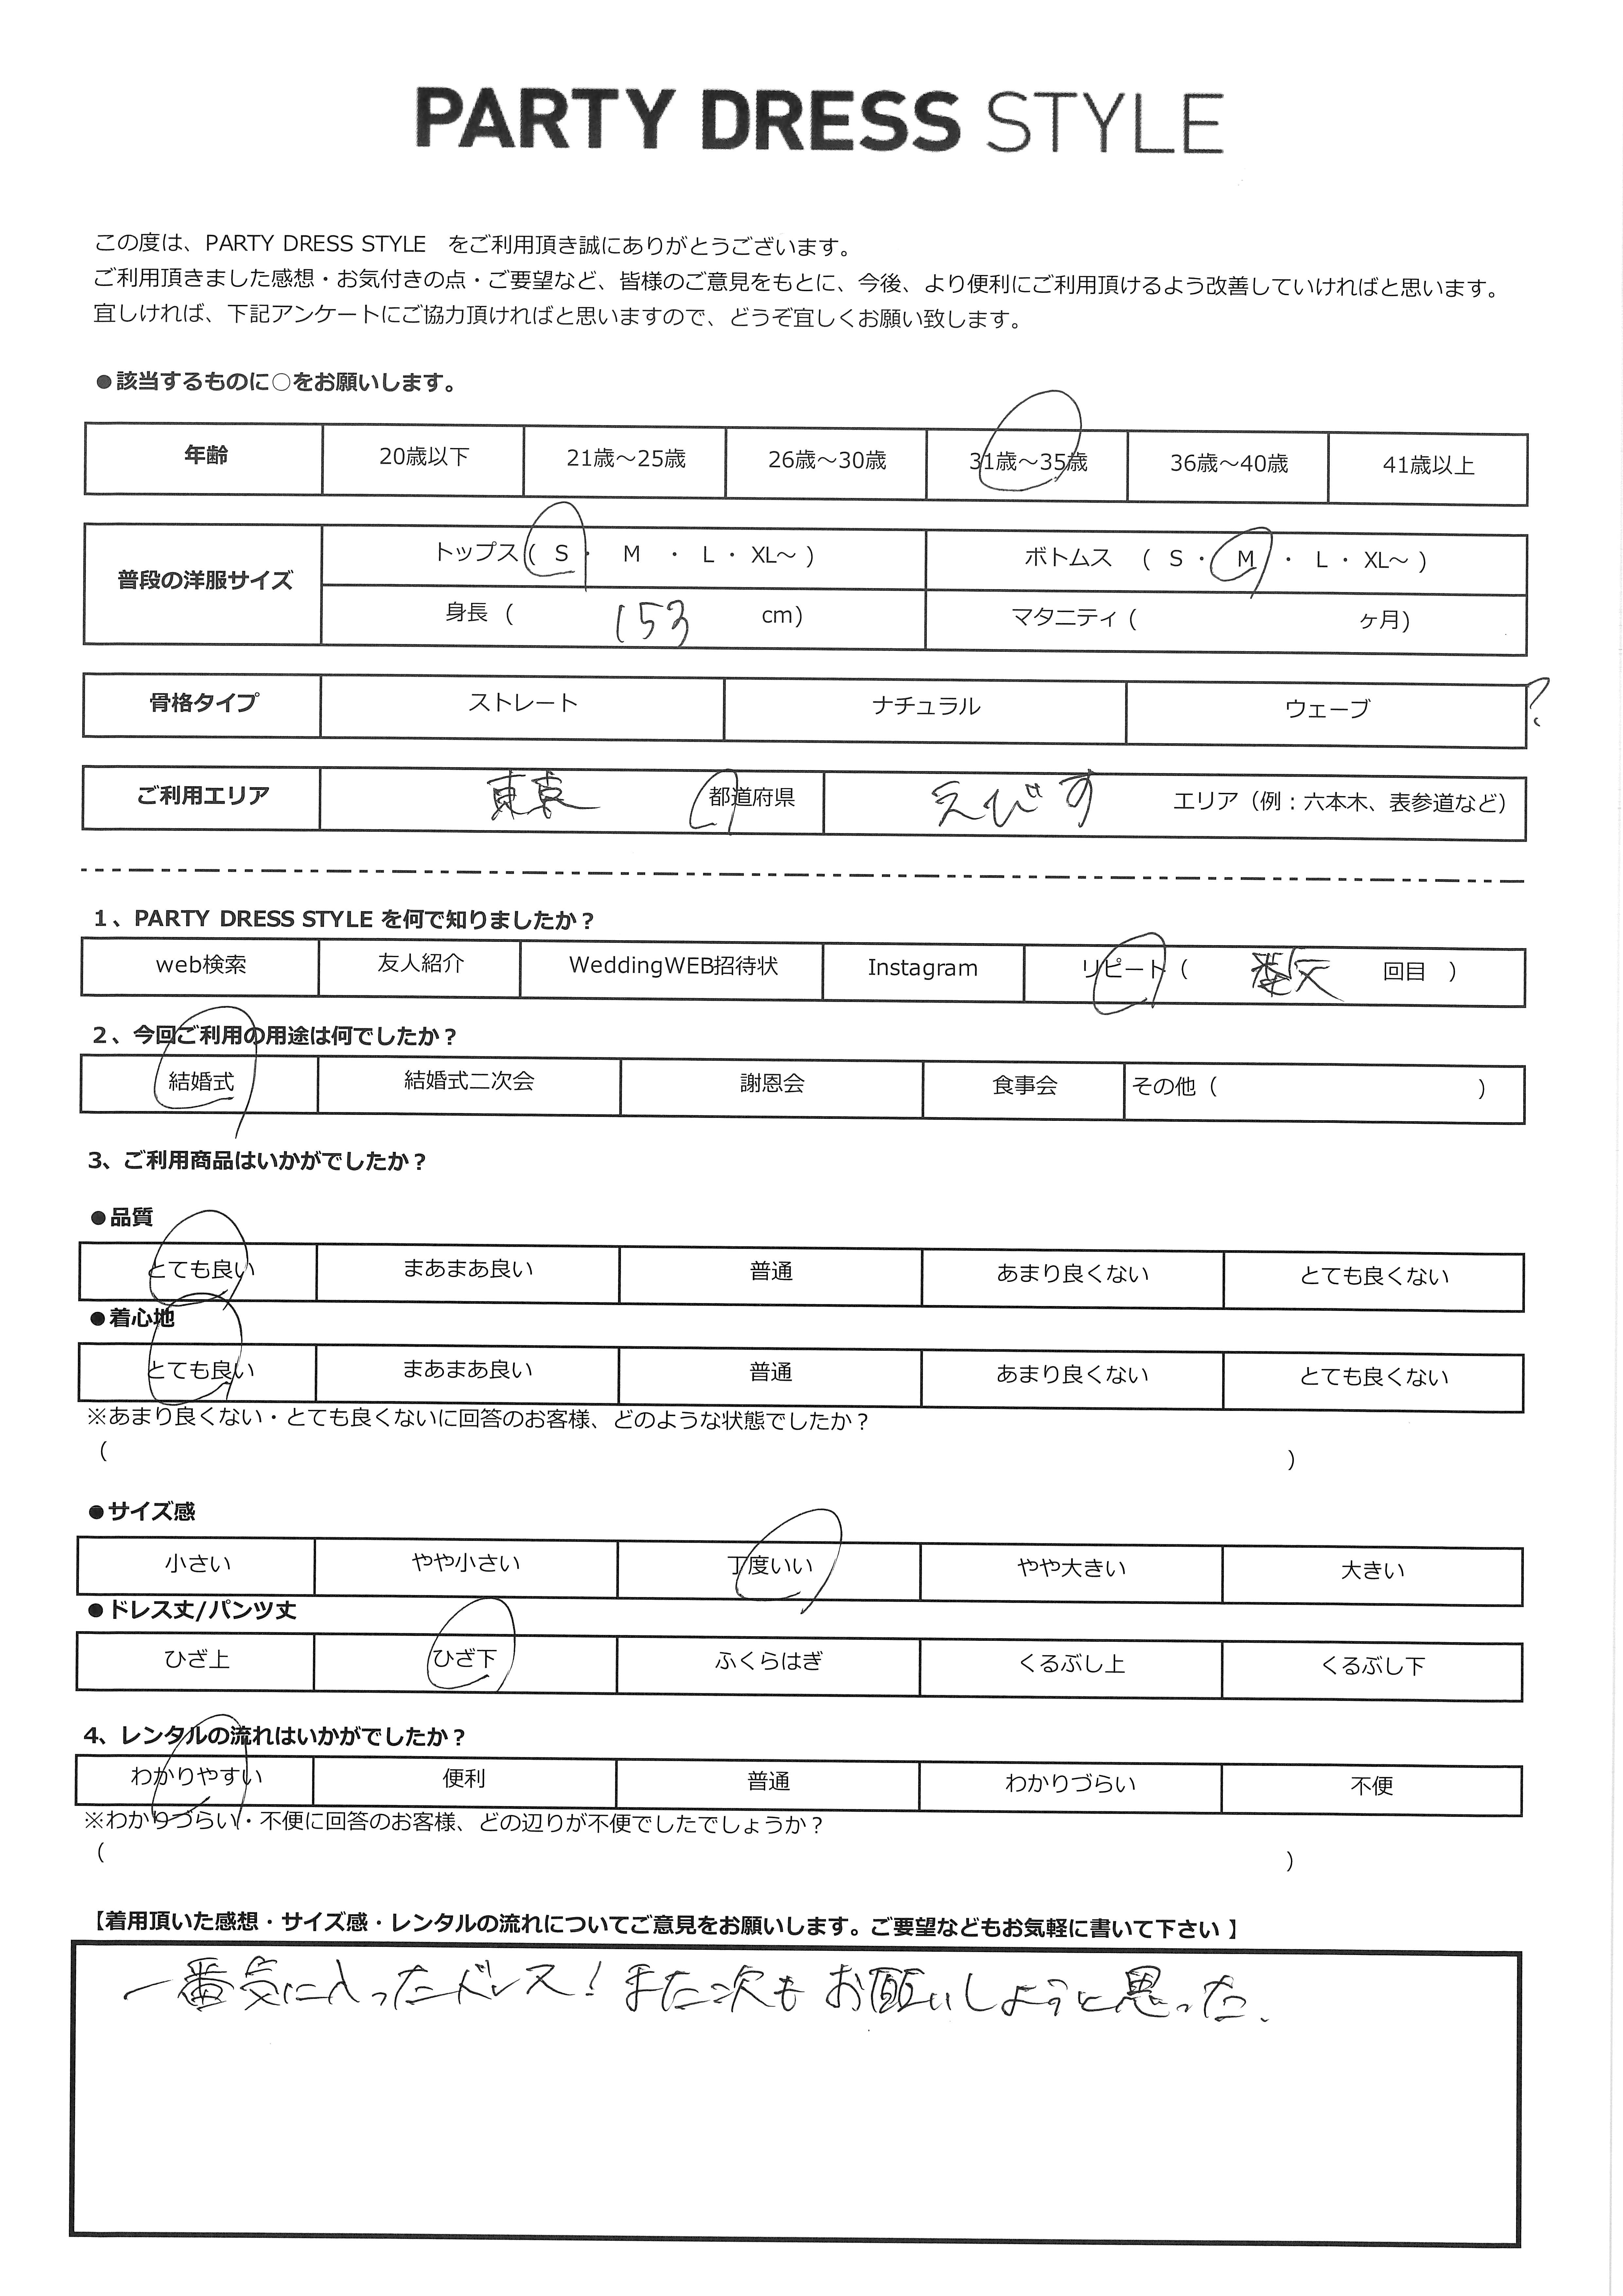 PARTY DRESS STYLE
この度は、PARTY DRESS STYLE をご利用頂き誠にありがとうございます。
ご利用頂きました感想・お気付きの点・ご要望など、皆様のご意見をもとに、今後、より便利にご利用頂けるよう改善していければと思います。
宜しければ、下記アンケートにご協力頂ければと思いますので、どうぞ宜しくお願い致します。
●該当するものに○をお願いします。
年齢 20歳以下 21歳～25歳 26歳～30歳 31歳～35歳 36歳～40歳 41歳以上
普段の洋服サイズ トップス ( S ・ M ・ L ・ XL～ ) ボトムス ( S ・ M ・ L ・ XL～ )
身長 ( 153 cm) マタニティ ( ヶ月)
骨格タイプ ストレート ナチュラル ウェーブ ?
ご利用エリア 東京 都道府県 えびす エリア（例：六本木、表参道など）
1、PARTY DRESS STYLE を何で知りましたか？
web検索 友人紹介 WeddingWEB招待状 Instagram リピート ( 回目 )
2、今回ご利用の用途は何でしたか？
結婚式 結婚式二次会 謝恩会 食事会 その他 ( )
3、ご利用商品はいかがでしたか？
●品質
とても良い まあまあ良い 普通 あまり良くない とても良くない
●着心地
とても良い まあまあ良い 普通 あまり良くない とても良くない
※あまり良くない・とても良くないに回答のお客様、どのような状態でしたか？
( )
●サイズ感
小さい やや小さい 丁度いい やや大きい 大きい
●ドレス丈/パンツ丈
ひざ上 ひざ下 ふくらはぎ くるぶし上 くるぶし下
4、レンタルの流れはいかがでしたか？
わかりやすい 便利 普通 わかりづらい 不便
※わかりづらい・不便に回答のお客様、どの辺りが不便でしたでしょうか？
( )
【着用頂いた感想・サイズ感・レンタルの流れについてご意見をお願いします。ご要望などもお気軽に書いて下さい 】
一番気に入ったドレス！また次もお願いしようと思った.